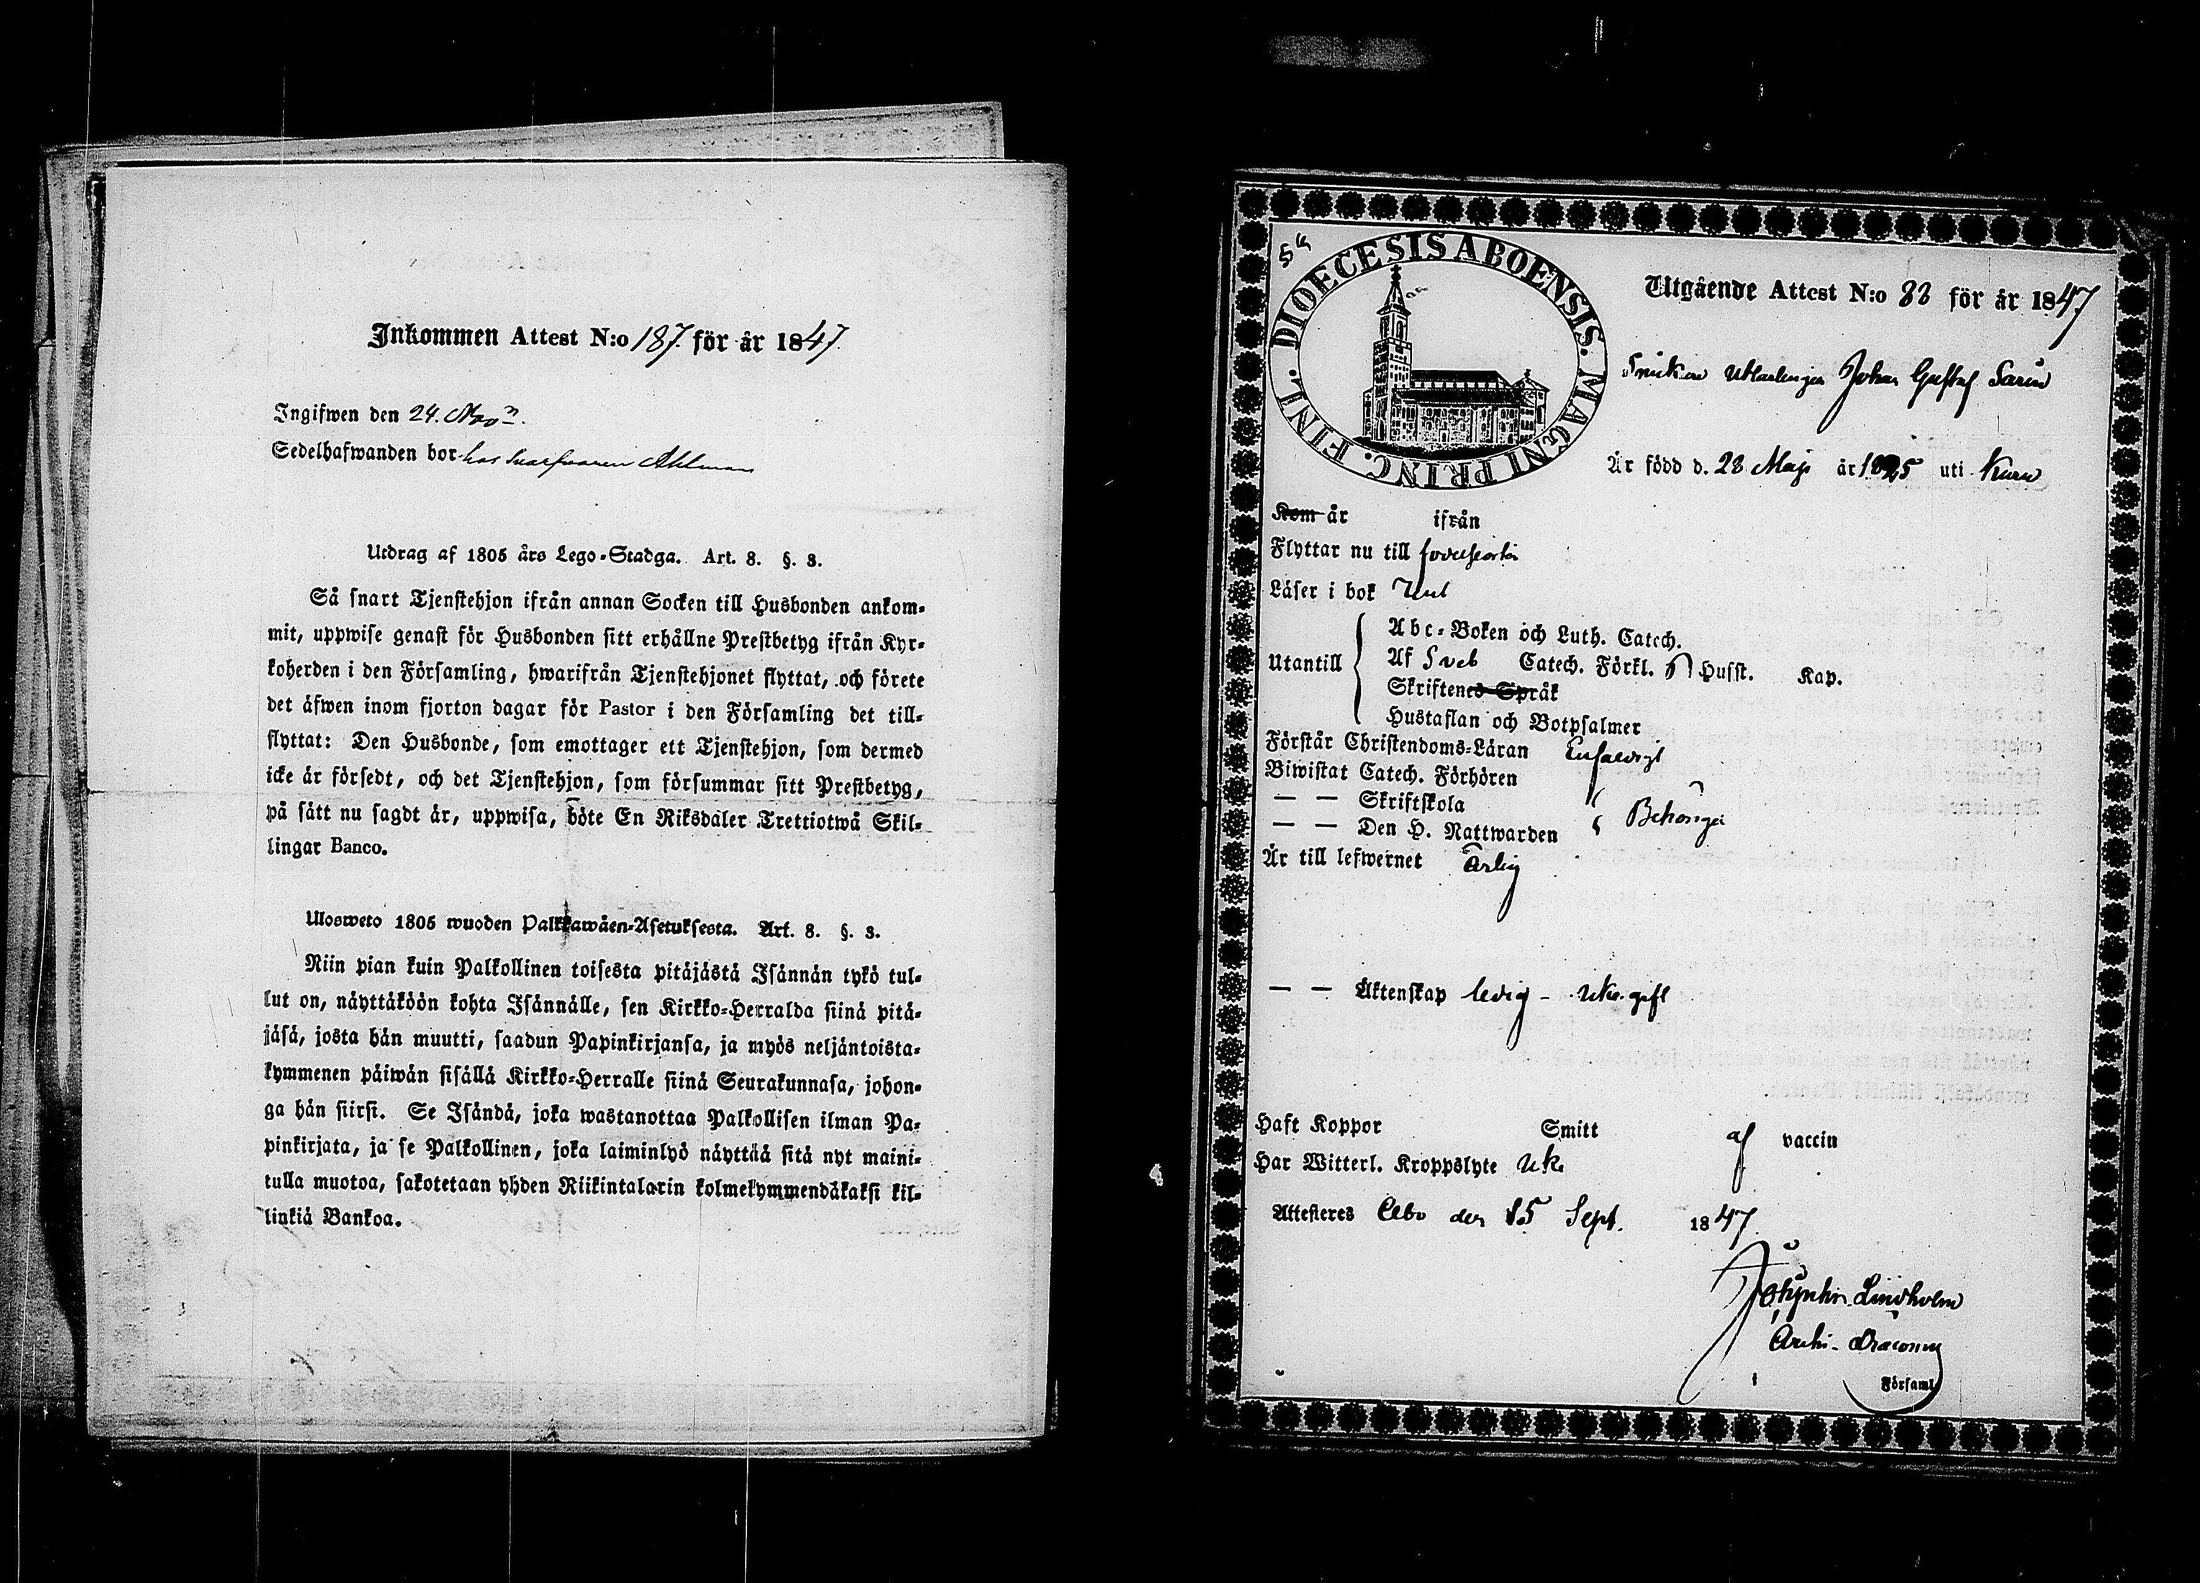 Inkommen Attest N:o 187 för år 1847.
Ingifwen den 24. Nov.
Sedelhafwanden bor hos Ahlman
Utdrag af 1805 års Lego-Stadga. Art. 8. §. 3.
Så snart Tjenstehjon ifrån annan Socken till Husbonden ankom-
mit, uppwise genast för Husbonden sitt erhållne Prestbetyg ifrån Kyr-
koherden i den Församling, hwarifrån Tjenstehjonet flyttat, och förete
det äfwen inom fjorton dagar för Pastor i den Församling det till-
flyttat: Den Husbonde, som emottager ett Tjenstehjon, som dermed
icke är försedt, och det Tjenstehjon, som försummar sitt Prestbetyg,
på sätt nu sagdt är, uppwisa, böte En Riksdaler Trettiotwå Skil-
lingar Banco.
Ulosweto 1805 wuoden Palkkawäen-Asetuksesta. Art. 8. §. 3.
Niin pian kuin Palkollinen toisesta pitäjästä Isännän tykö tul-
lut on, näyttäköön kohta Isännälle, sen Kirkko-Herralda siinä pitä-
jäsä, josta hän muutti, saadun Papinkirjansa, ja myös neljäntoista-
kymmenen päiwän sisällä Kirkko-Herralle siinä Seurakunnasa, johon-
ga hän siirsi. Se Isändä, joka wastanottaa Palkollisen ilman Pa-
pinkirjata, ja se Palkollinen, joka laiminlyö näyttää sitä nyt maini-
tulla muotoa, sakotetaan yhden Riikintalarin kolmekymmendäkaksi kil-
linkiä Bankoa.
DIOECESIS ABOENSIS. MAGNI PRINC. FINL.
Utgående Attest N:o 82 för år 1847
Johan Gustaf
Är född d. 28 Maji år 1825 uti
Kom år ifrån
Flyttar nu till
Läser i bok
Abc-Boken och Luth. Catech.
Utantill Af Sveb Catech. Förkl. Husst. Kap.
Skriftenes Språk
Hustaflan och Botpsalmer
Förstår Christendoms-Läran Enfaldigt
Biwistat Catech. Förhören
— — Skriftskola
— — Den H. Nattwarden Behörigen
Är till lefwernet Ärlig
— — Äktenskap ledig -
Haft Koppor Smitt af vaccin
Har Witterl. Kroppslyte
Attesteres Åbo den 15 Sept. 1847.
Lindholm
Archi-Diaconus
Församl.